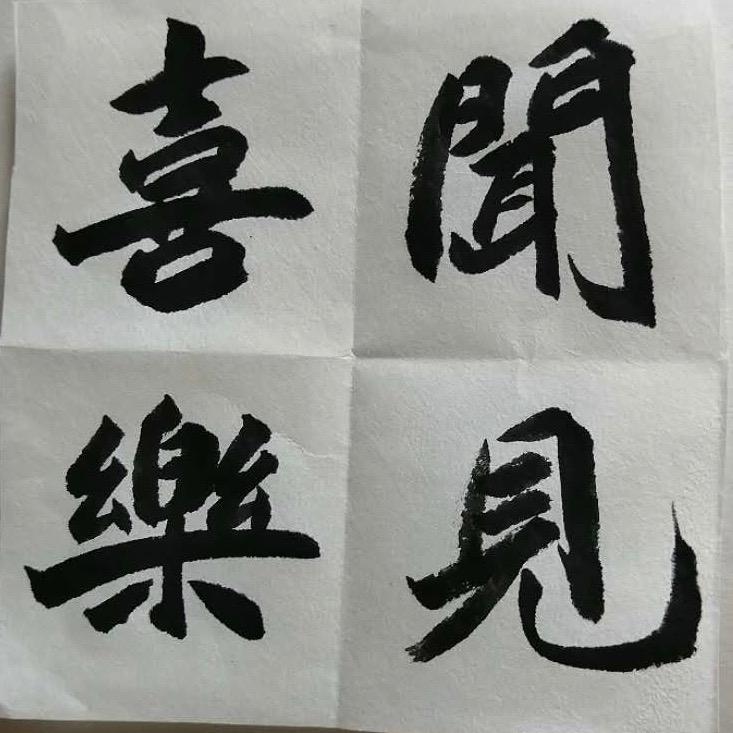 聞見
喜樂